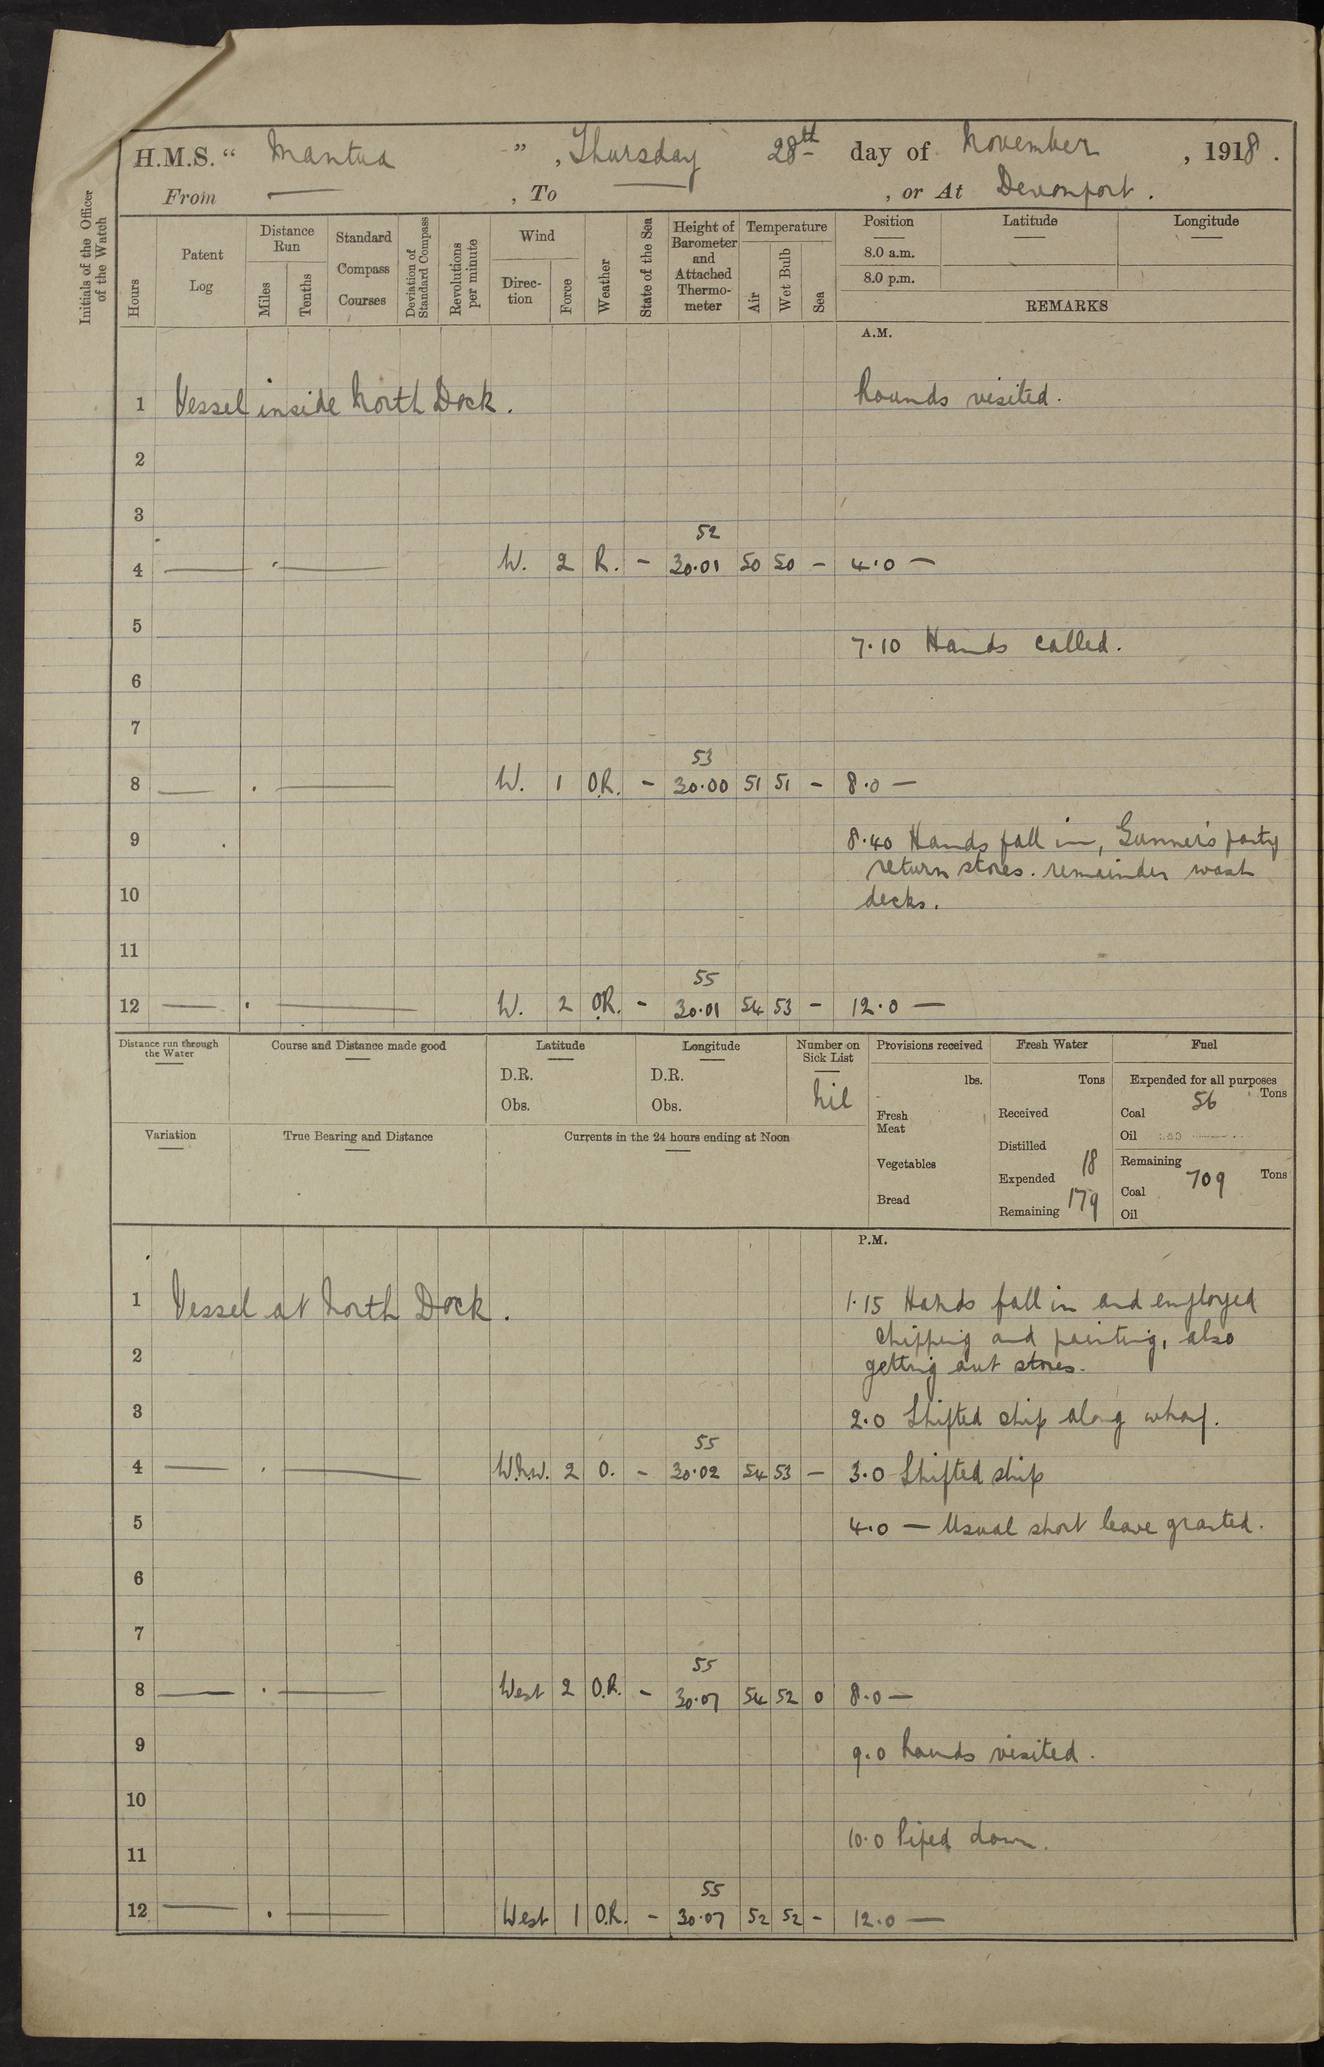 H.M.S. “ Mantua ” , Thursday 28th day of November , 1918 .
From — , To — , or At Devonport .
Initials of the Officer of the Watch
Hours
Patent Log
Distance Run
Miles
Tenths
Standard Compass Courses
Deviation of Standard Compass
Revolutions per minute
Wind
Direc-tion
Force
Weather
State of the Sea
Height of Barometer and Attached Thermo-meter
Temperature
Air
Wet Bulb
Sea
Position
Latitude
Longitude
8.0 a.m.
8.0 p.m.
REMARKS
A.M.
1 Vessel inside North Dock . Rounds visited .
2
3
52
4 — . — W. 2 R. - 30.01 50 50 - 4.0 —
5
7.10 Hands called .
6
7
53
8 — . — W. 1 O.R. - 30.00 51 51 - 8.0 —
9 8.40 Hands fall in, Gunner's party
return stores . remainder wash
10 decks .
11
55
12 — . — W. 2 O.R. - 30.01 54 53 - 12.0 —
Distance run through the Water
Course and Distance made good
Latitude
D.R.
Obs.
Longitude
D.R.
Obs.
Number on Sick List
Nil
Variation
True Bearing and Distance
Currents in the 24 hours ending at Noon
Provisions received
lbs.
Fresh Meat
Vegetables
Bread
Fresh Water
Tons
Received
Distilled
Expended 18
Remaining 179
Fuel
Expended for all purposes
Tons
Coal 56
Oil
Remaining
Tons
Coal 709
Oil
P.M.
1 Vessel at North Dock . 1.15 Hands fall in and employed
chipping and painting, also
2 getting out stores .
3 2.0 Shifted ship along wharf .
55
4 — . — W.N.W. 2 O. - 30.02 54 53 — 3.0 Shifted ship
5 4.0 — Usual short leave granted .
6
7
55
8 — . — West 2 O.R. - 30.07 54 52 0 8.0 —
9 9.0 Rounds visited .
10
10.0 Piped down .
11
55
12 — . — West 1 O.R. - 30.07 52 52 - 12.0 —